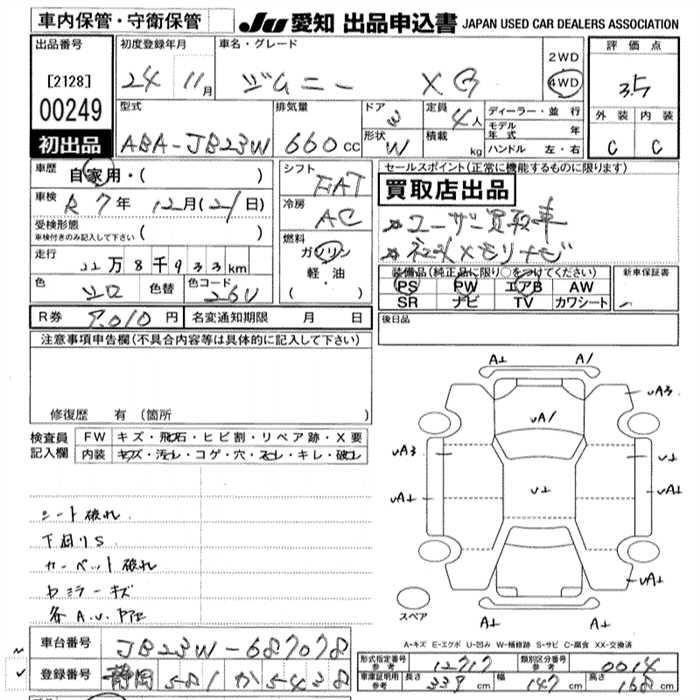 車内保管・守衛保管
JU 愛知 出品申込書 JAPAN USED CAR DEALERS ASSOCIATION
出品番号
[2128]
00249
初出品
初度登録年月
24 11月
車名・グレード
ジムニー XG
2WD
4WD
評価点
3.5
外装 内装
C C
型式
ABA-JB23W
排気量
660cc
ドア
形状 W
定員 4人
積載 kg
ディーラー・並行
モデル年式 年
ハンドル 左・右
車歴
自家用・( )
車検
R7年 12月(21)日
受検形態
車検付きのみ記入して下さい ( )
走行
22万8千933km
色 シロ 色替 色コード 26U
シフト
FAT
冷房
AC
燃料
ガソリン
軽油
( )
セールスポイント(正常に機能するものに限ります)
買取店出品
※ユーザー買取車
※社外メモリナビ
装備品(純正品に限り○をつけてください)
PS PW エアB AW
SR ナビ TV カワシート
新車保証書
R券 9,010円 名変通知期限 月 日
後日品
注意事項申告欄(不具合内容等は具体的に記入して下さい)
修復歴 有 (箇所
検査員記入欄
FW キズ・飛石・ヒビ割・リペア跡・X要
内装 キズ・汚れ・コゲ・穴・スレ・キレ・破れ
シート破れ
下回りS
カーペット破れ
Rミラーキズ
各A.U.
A⊥ A/
UA3
UA/
UA3 U⊥
UA⊥ U⊥ UA⊥
UA⊥
スペア
A⊥ A⊥
A-キズ E-エクボ U-凹み W-補修跡 S-サビ C-腐食 XX-交換済
車台番号 JB23W-687078
登録番号 静岡 581 か 5438
形式指定番号 参考 12717 類別区分番号 参考 0014
車庫証明用 参考 長さ 339cm 幅 147cm 高さ 168cm